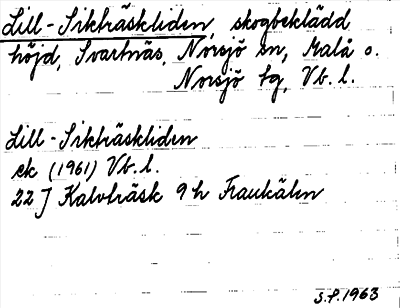 Lill-Sikträskliden, skogbeklädd
höjd, Svartnäs, Norsjö sn, Malå o.
Norsjö tg, Vb. l.
Lill-Sikträskliden
ek (1961) Vb. l.
22 J Kalvträsk 9 h Fraukälen
S.P. 1963